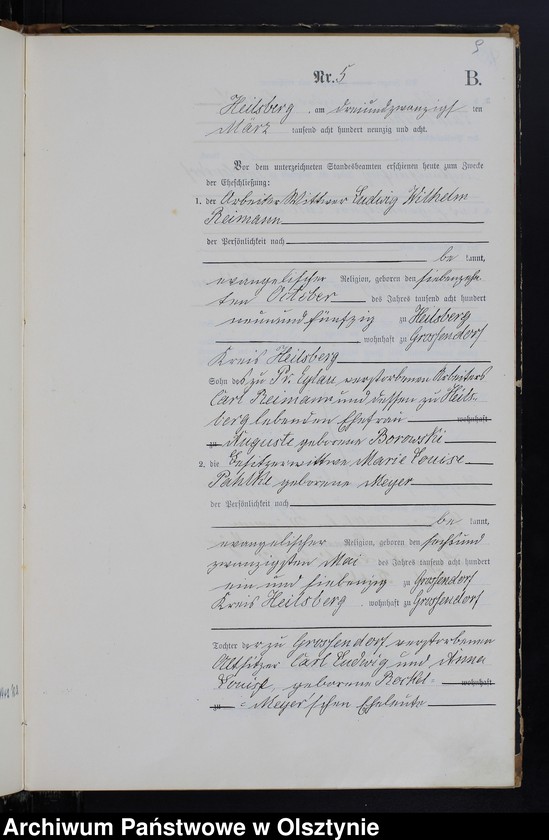 9
Nr. 5 B.
Heilsberg, am dreiundzwanzigsten
März tausend acht hundert neunzig und acht.
Vor dem unterzeichneten Standesbeamten erschienen heute zum Zwecke
der Eheschließung:
1. der Arbeiter Wittwer Ludwig Wilhelm
Reimann
der Persönlichkeit nach
be kannt,
evangelischer Religion, geboren den siebenzehn-
ten October des Jahres tausend acht hundert
neunundfünfzig zu Heilsberg
wohnhaft zu Grossendorf
Kreis Heilsberg
Sohn des zu Pr. Eylau verstorbenen Arbeiters
Carl Reimann und dessen zu Heils-
berg lebenden Ehefrau wohnhaft
zu Auguste geborene Borowski
2. die Besitzerwittwe Marie Louise
Pahlke geborene Meyer
der Persönlichkeit nach
be kannt,
evangelischer Religion, geboren den sechsund
zwanzigsten Mai des Jahres tausend acht hundert
ein und siebenzig zu Grossendorf
Kreis Heilsberg, wohnhaft zu Grossendorf
Tochter der zu Grossendorf verstorbenen
Altsitzer Carl Ludwig und Anna
Louise, geborene wohnhaft
zu = Meyer'schen Eheleute
Archiwum Państwowe w Olsztynie